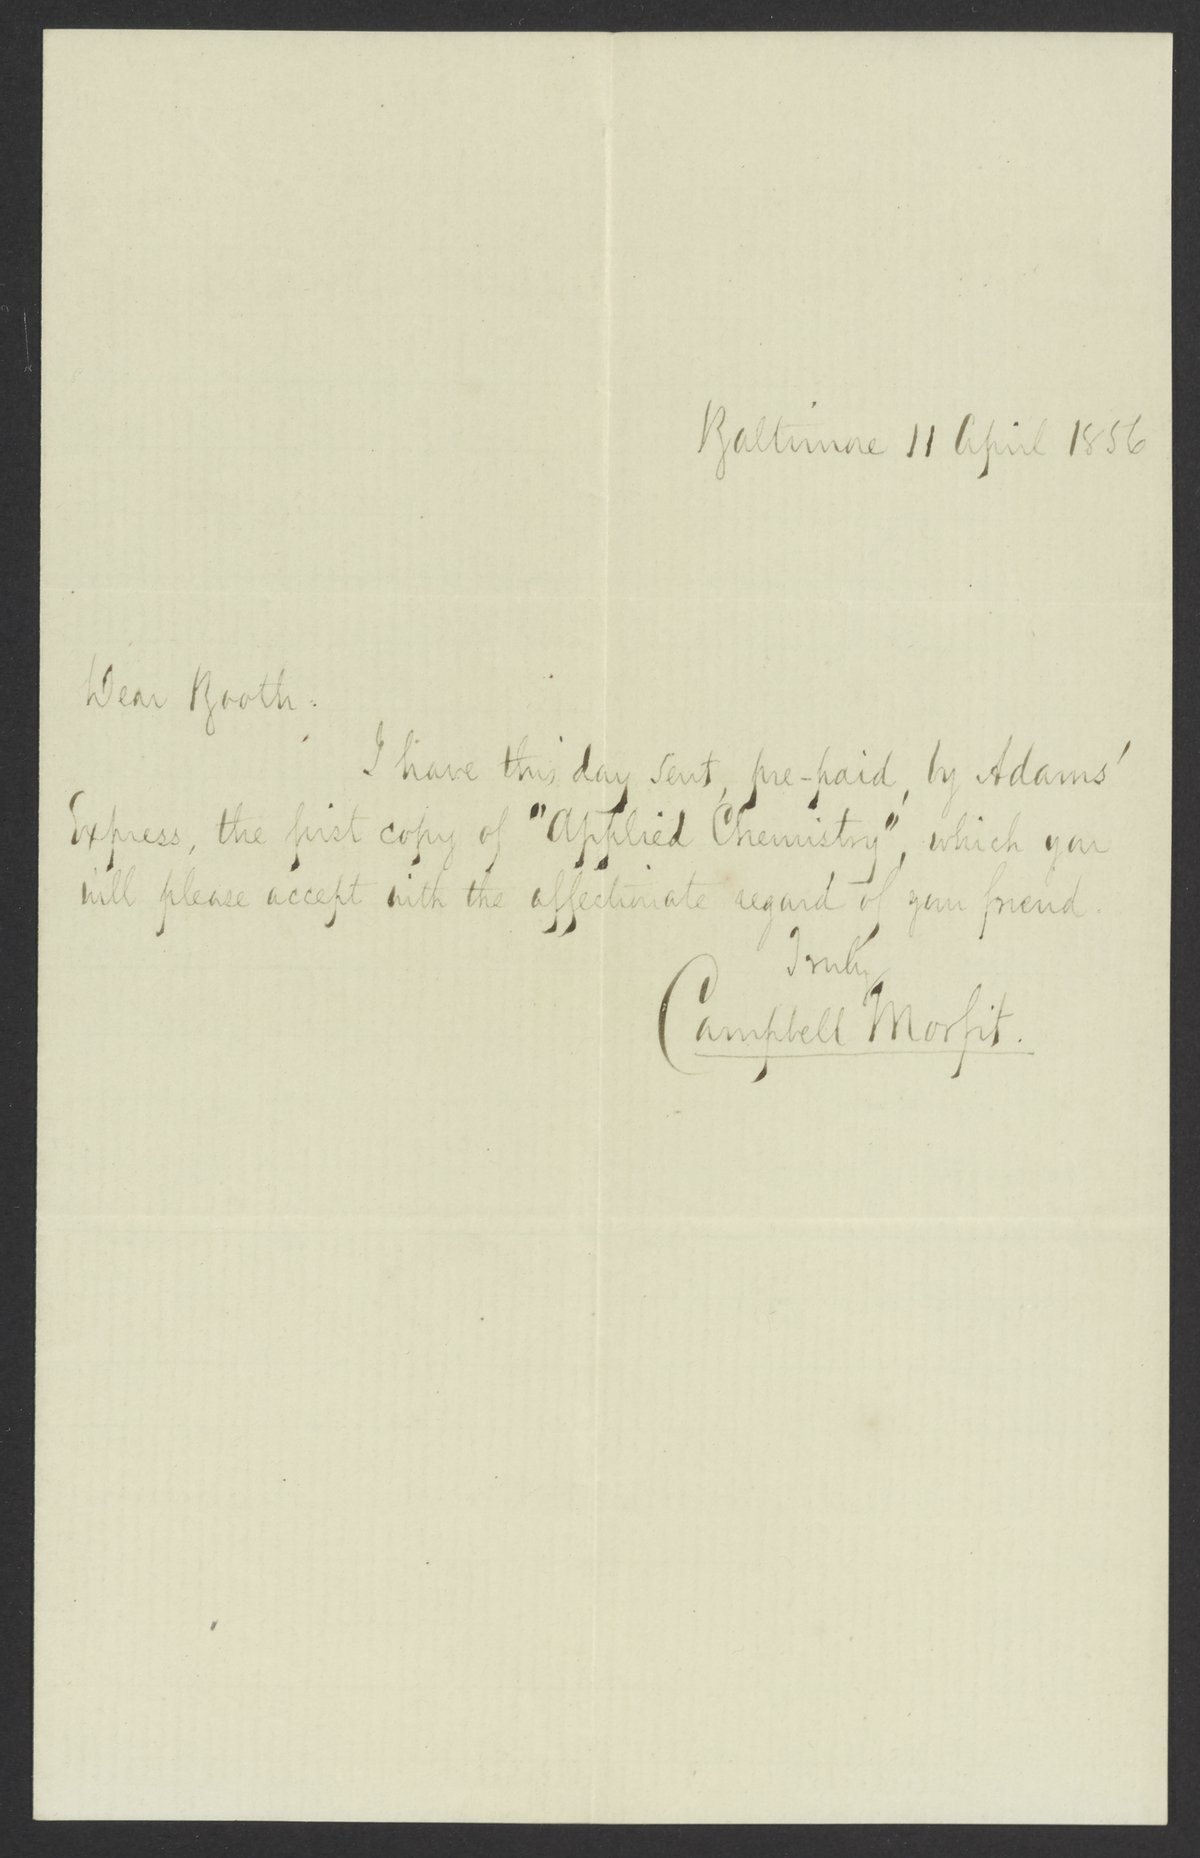 Baltimore 11 April 1856
Dear Booth:
I have this day sent, pre-paid, by Adams'
Express, the first copy of "Applied Chemistry", which you
will please accept with the affectionate regard of your friend.
Truly
Campbell Morfit.